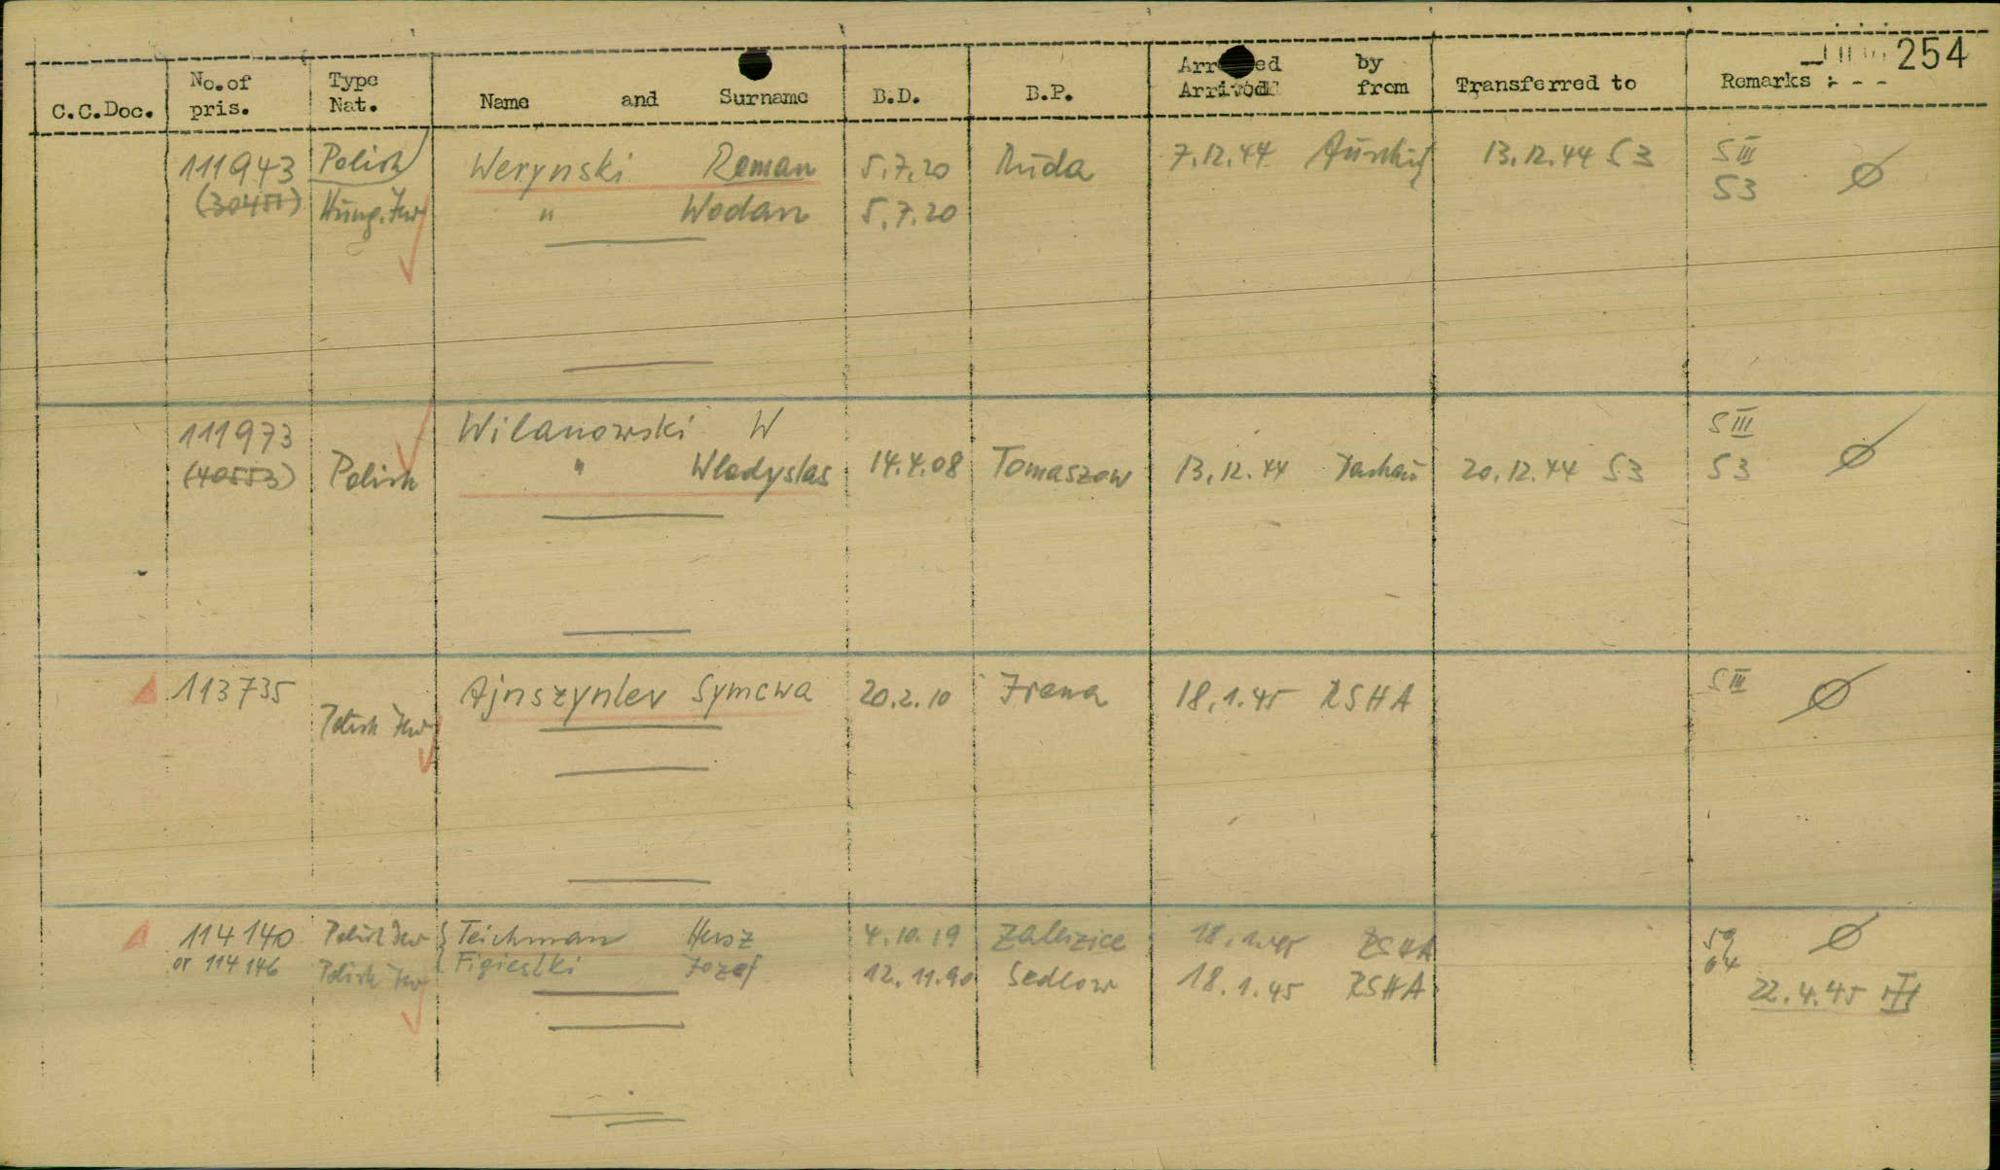 254
C.C.Doc. No.of pris. Type Nat. Name and Surname B.D. B.P. Arrived by Arrived from Transferred to Remarks :
111943 Polish Werynski Roman 5.7.20 Ruda 7.12.44 13.12.44 S3 S III
(30451) Hung. Jew " Wodan 5.7.20 S3
111973 Wilanowski W S III
(40553) Polish " Wladyslas 14.4.08 Tomaszow 13.12.44 Dachau 20.12.44 S3 S3
113735 Ajnszynler Symcwa 20.2.10 18.1.45 RSHA S III
Polish Jew
114140 Polish Jew Teichman Hersz 4.10.19 Zalezice 18.1.45 RSHA 59
or 114146 Polish Jew Figielski Jozef 12.11.90 Sedlow 18.1.45 RSHA 64
22.4.45 III